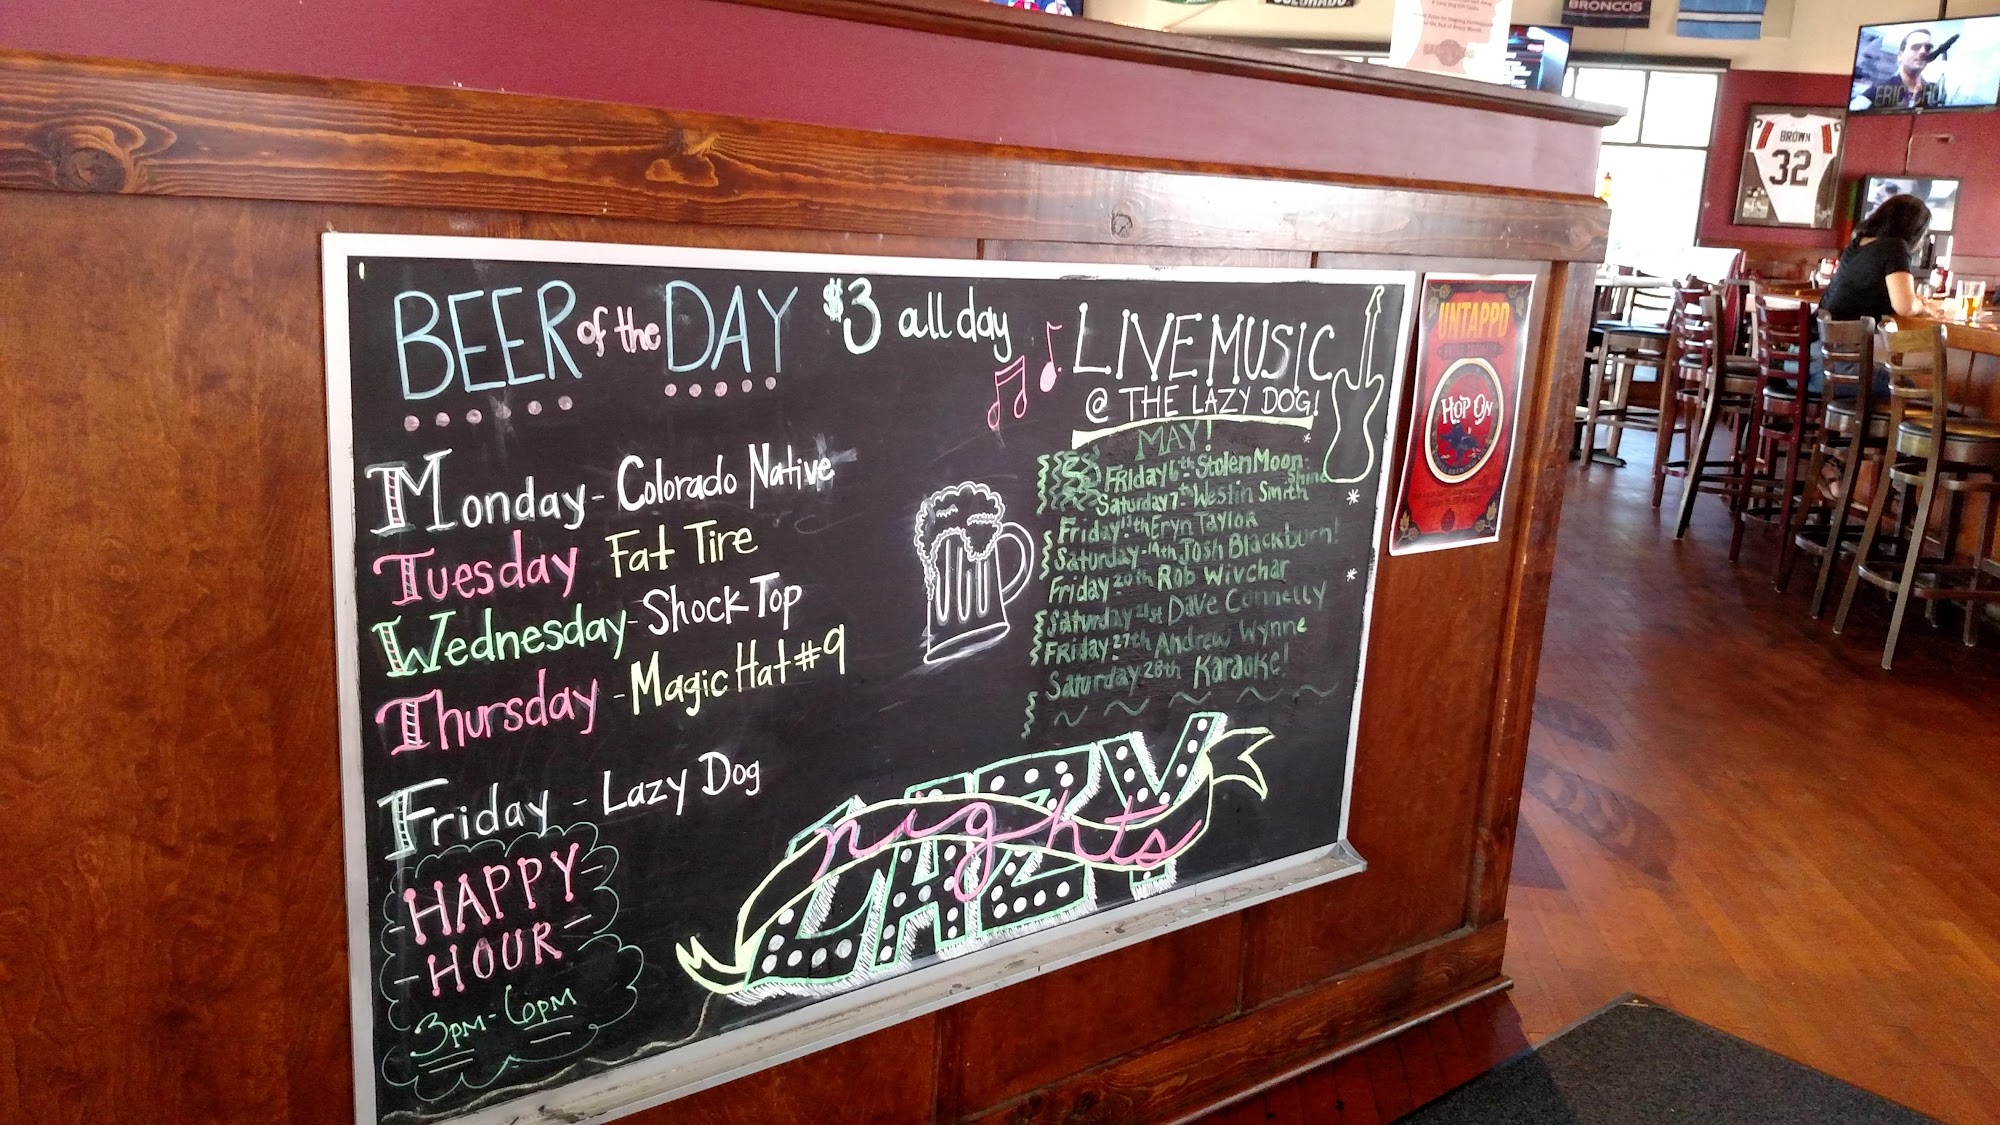 BEER of the DAY $3 all day
Monday - Colorado Native
Tuesday Fat Tire
Wednesday - Shock Top
Thursday - Magic Hat #9
Friday - Lazy Dog
HAPPY
HOUR
3PM - 6PM
LIVE MUSIC
@ THE LAZY DOG!
MAY!
Friday 6th Stolen Moon-
shine
Saturday 7th Westin Smith
Friday 13th Eryn Taylor
Saturday - 14th Josh Blackburn!
Friday 20th Rob Wivchar
Saturday 21st Dave Connelly
Friday 27th Andrew Wynne
Saturday 28th Karaoke!
LAZY
nights
LAZY
UNTAPPD
HOP ON
COLORADO
BRONCOS
ERIC
BROWN
32